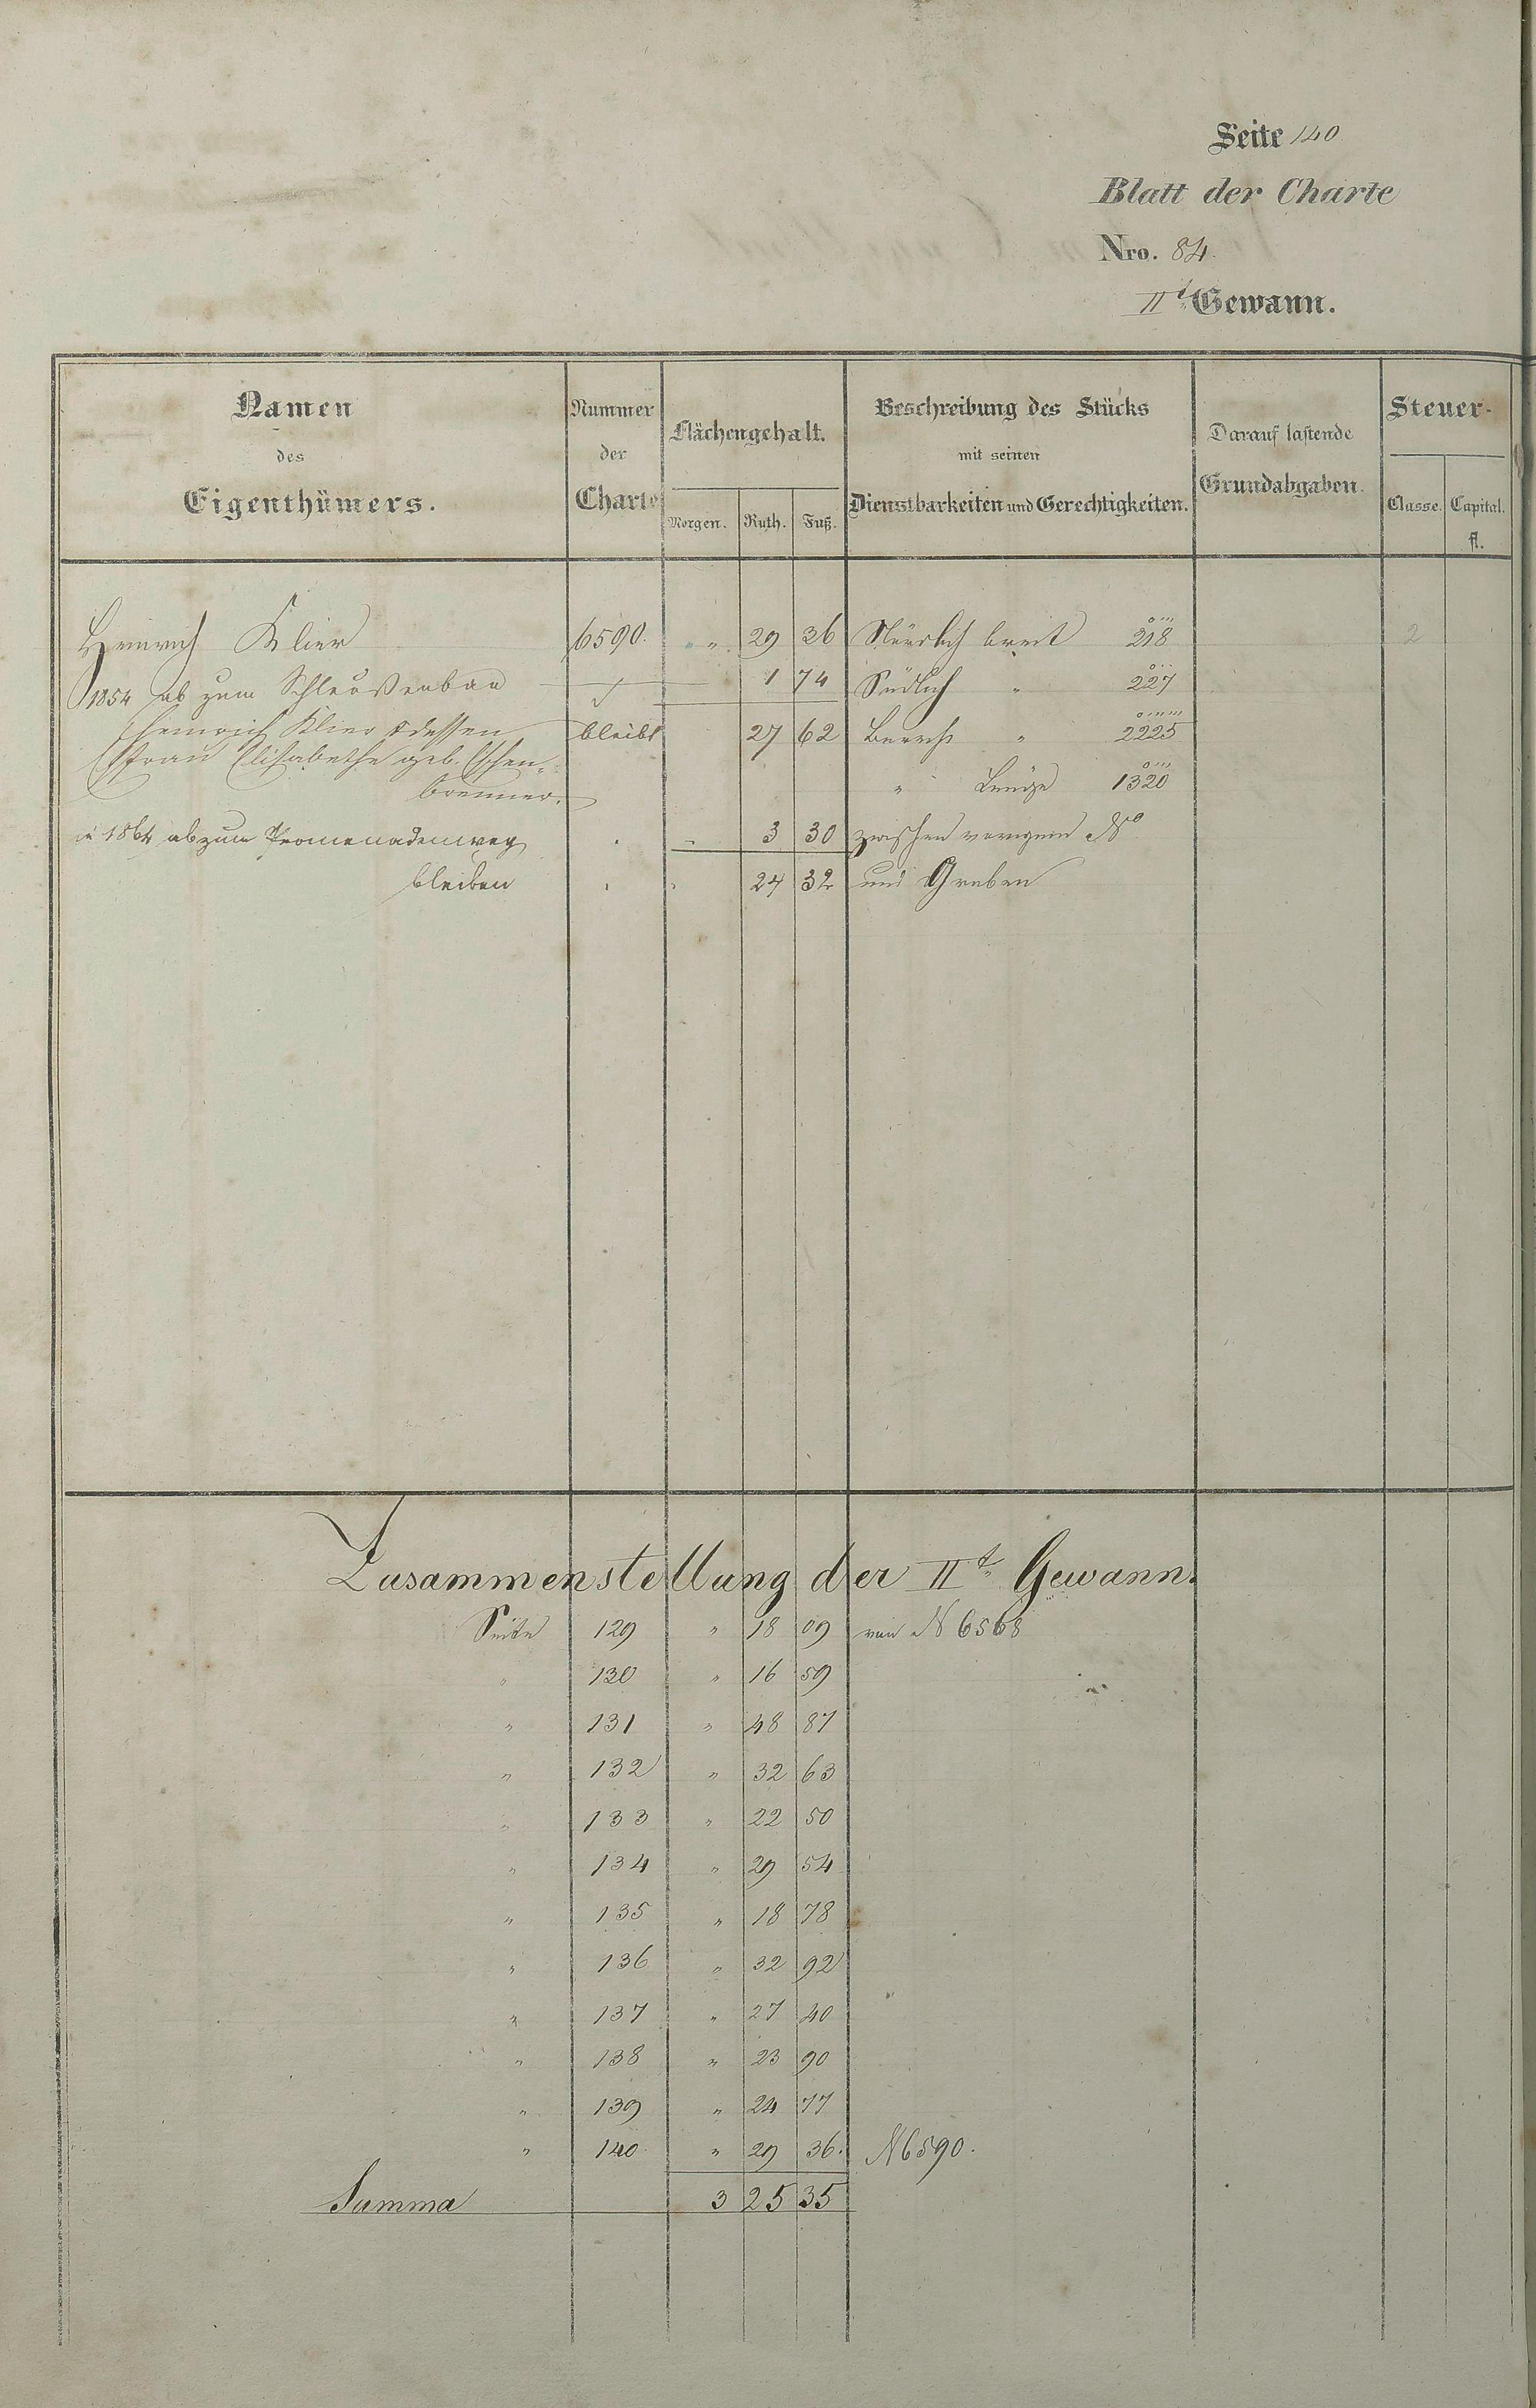 Seite 140
Blatt der Charte
Nro. 84.
IIt. Gewann.
Namen des Eigenthümers. | Nummer der Charte | Flächengehalt. Morgen. Ruth. Fuß. | Beschreibung des Stücks mit seinen Dienstbarkeiten und Gerechtigkeiten. | Darauf lastende Grundabgaben. | Steuer- Classe. Capital. fl.
Heinrich Klier 6590. " 29 36 Nördlich breit 218 2
1854 ab zum Schleußenbau 1 74 Südlich " 227
Heinrich Klier & dessen bleibt 27 62 Berechn " 2225
Efrau Elisabethe geb. Eschen- " Länge 1320
brenner.
in 1864 ab zum Promenadenweg " 3 30 zwischen vorigem No
bleiben " " 24 32 und Graben
Zusammenstellung der IIt. Gewann.
Seite 129 " 18 09 von N 6568
" 130 " 16 59
" 131 " 48 87
" 132 " 32 63
" 133 " 22 50
" 134 " 29 54
" 135 " 18 78
" 136 " 32 92
" 137 " 27 40
" 138 " 23 90
" 139 " 24 77
" 140. " 29 36. N 6590.
Summa 3 25 35